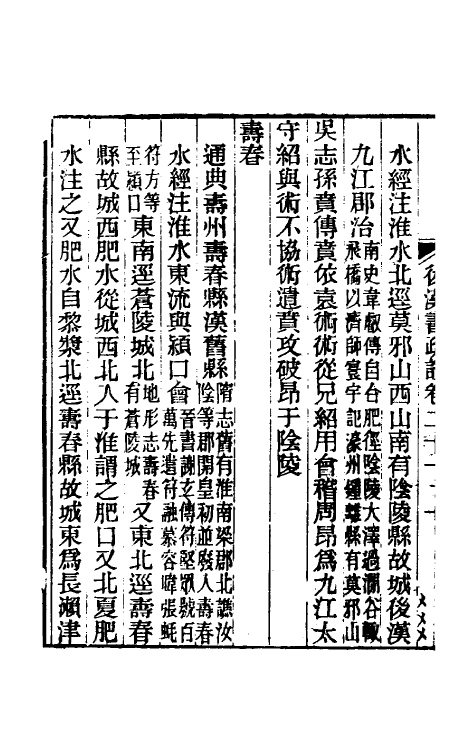 後漢書疏證卷二十
水經注淮水北逕莫邪山西山南有陰陵縣故城後漢
九江郡治南史韋叡傳自合肥徑陰陵大澤過澗谷輒
飛橋以濟師寰宇記濠州鍾離縣有莫邪山
吳志孫賁傳賁依袁術術從兄紹用會稽周昂爲九江太
守紹與術不協術遣賁攻破昂于陰陵
壽春
通典壽州壽春縣漢舊縣隋志舊有淮南梁郡北譙汝
陰等郡開皇初並廢入壽春
水經注淮水東流與潁口會晉書謝玄傳苻堅眾號百
萬先遣苻融慕容暐張蚝
苻方等
至潁口東南逕蒼陵城北地形志壽春
有蒼陵城又東北逕壽春
縣故城西肥水從城西北入于淮謂之肥口又北夏肥
水注之又肥水自黎漿北逕壽春縣故城東爲長瀨津